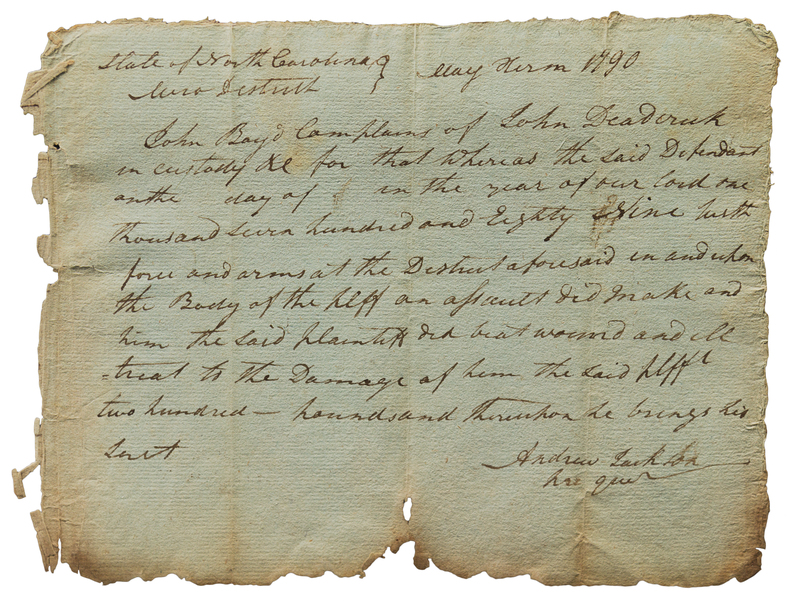 State of North Carolina } May Term 1790
Mero District
John Boyd Complains of John Deaderick
in custody &c for that Whereas the said Defendant
on the day of in the year of our lord one
thousand seven hundred and Eighty Nine with
force and arms at the District aforesaid in and upon
the Body of the plff an assault did make and
him the said plaintiff did beat wound and ill
=treat to the Damage of him the said plff
two hundred — pounds and thereupon he brings his
Suit
Andrew Jackson
pro quer